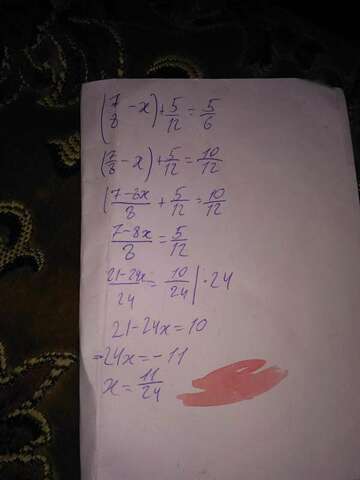 (7/8 - x) + 5/12 = 5/6
(7/8 - x) + 5/12 = 10/12
(7-8x/8 + 5/12 = 10/12
7-8x/8 = 5/12
21-24x/24 = 10/24 | · 24
21-24x = 10
-24x = -11
x = 11/24